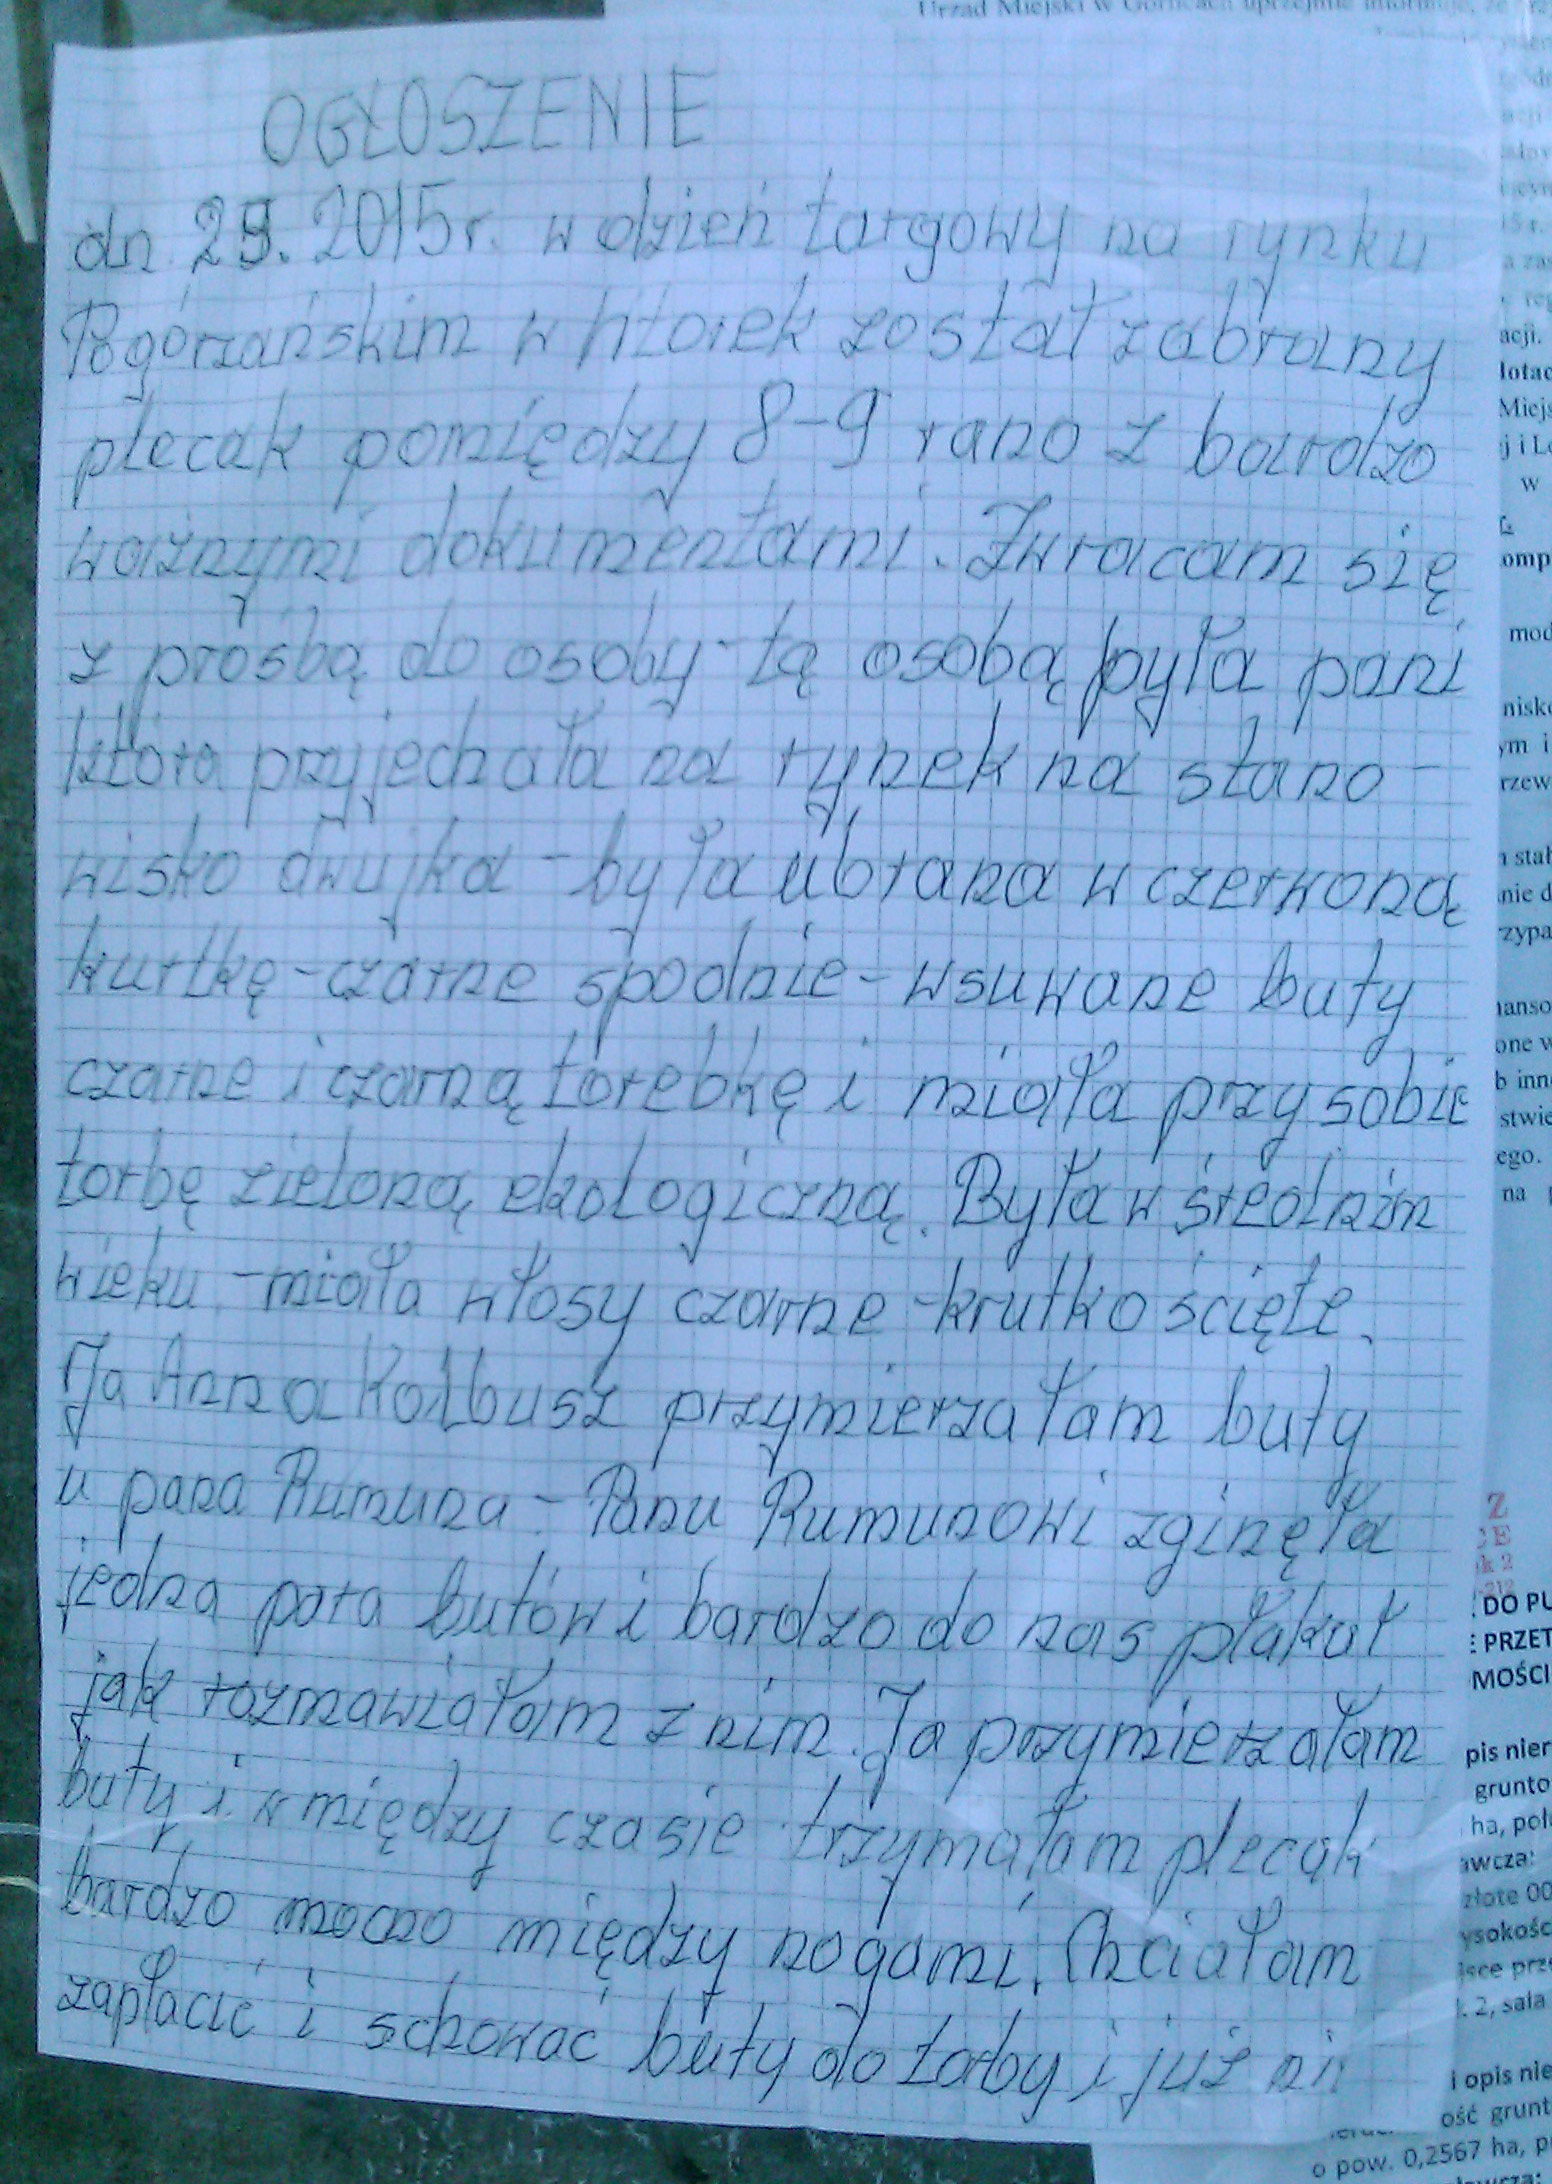 Urząd Miejski w Gorlicach uprzejmie informuje, że
OGŁOSZENIE
dn. 29. 2015r. w dzień targowy na rynku
Pogórzańskim w htorek został zabrany
plecak pomiędzy 8-9 rano z bardzo
ważnymi dokumentami. Zwracam się
z prośbą do osoby - tą osobą była pani
która przyjechała na rynek na stano-
wisko dwujka - była ubrana w czerwoną
kurtkę - czarne spodnie - wsuwane buty
czarne i czarną torebkę i miała przy sobie
torbę zieloną ekologiczną. Była w średnim
wieku - miała włosy czarne - krutko ścięte.
Ja Anna Kolbusz przymierzałam buty
u pana Rumuna - Panu Rumunowi zginęła
jedna para butów i bardzo do nas płakał
jak rozmawiałam z nim. Ja przymierzałam
buty i w między czasie trzymałam plecak
bardzo mocno między nogami. Chciałam
zapłacić i schować buty do torby i już ni
acji.
Miejs
w
omp
mod
ego.
na
DO PU
PRZET
MOŚCI
pis nier
grunto
ha, poł
awcza:
złote 00
ysokośc
2, sala
i opis nie
ość grunt
o pow. 0,2567 ha, p